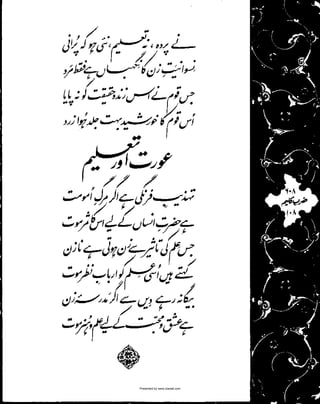 نے پردہ، نہ تعلیم، نئی ہو کہ پرانی
نسوانیتِ زن کا نگہباں ہے فقط مرد
جس قوم نے اس زندہ حقیقت کو نہ پایا
اس قوم کا خورشید بہت جلد ہوا زرد
عورت اور تعلیم
تہذیبِ فرنگی ہے اگر مرگِ امومت
ہے حضرتِ انساں کے لیے اس کا ثمر موت
جس علم کی تاثیر سے زن ہوتی ہے نازن
کہتے ہیں اسی علم کو اربابِ نظر موت
بیگانہ رہے دیں سے اگر مدرسۂ زن
ہے عشق و محبت کے لیے علم و ہنر موت
۶۰۸
ضربِ کلیم
۱۰۸
Presented by www.ziaraat.com